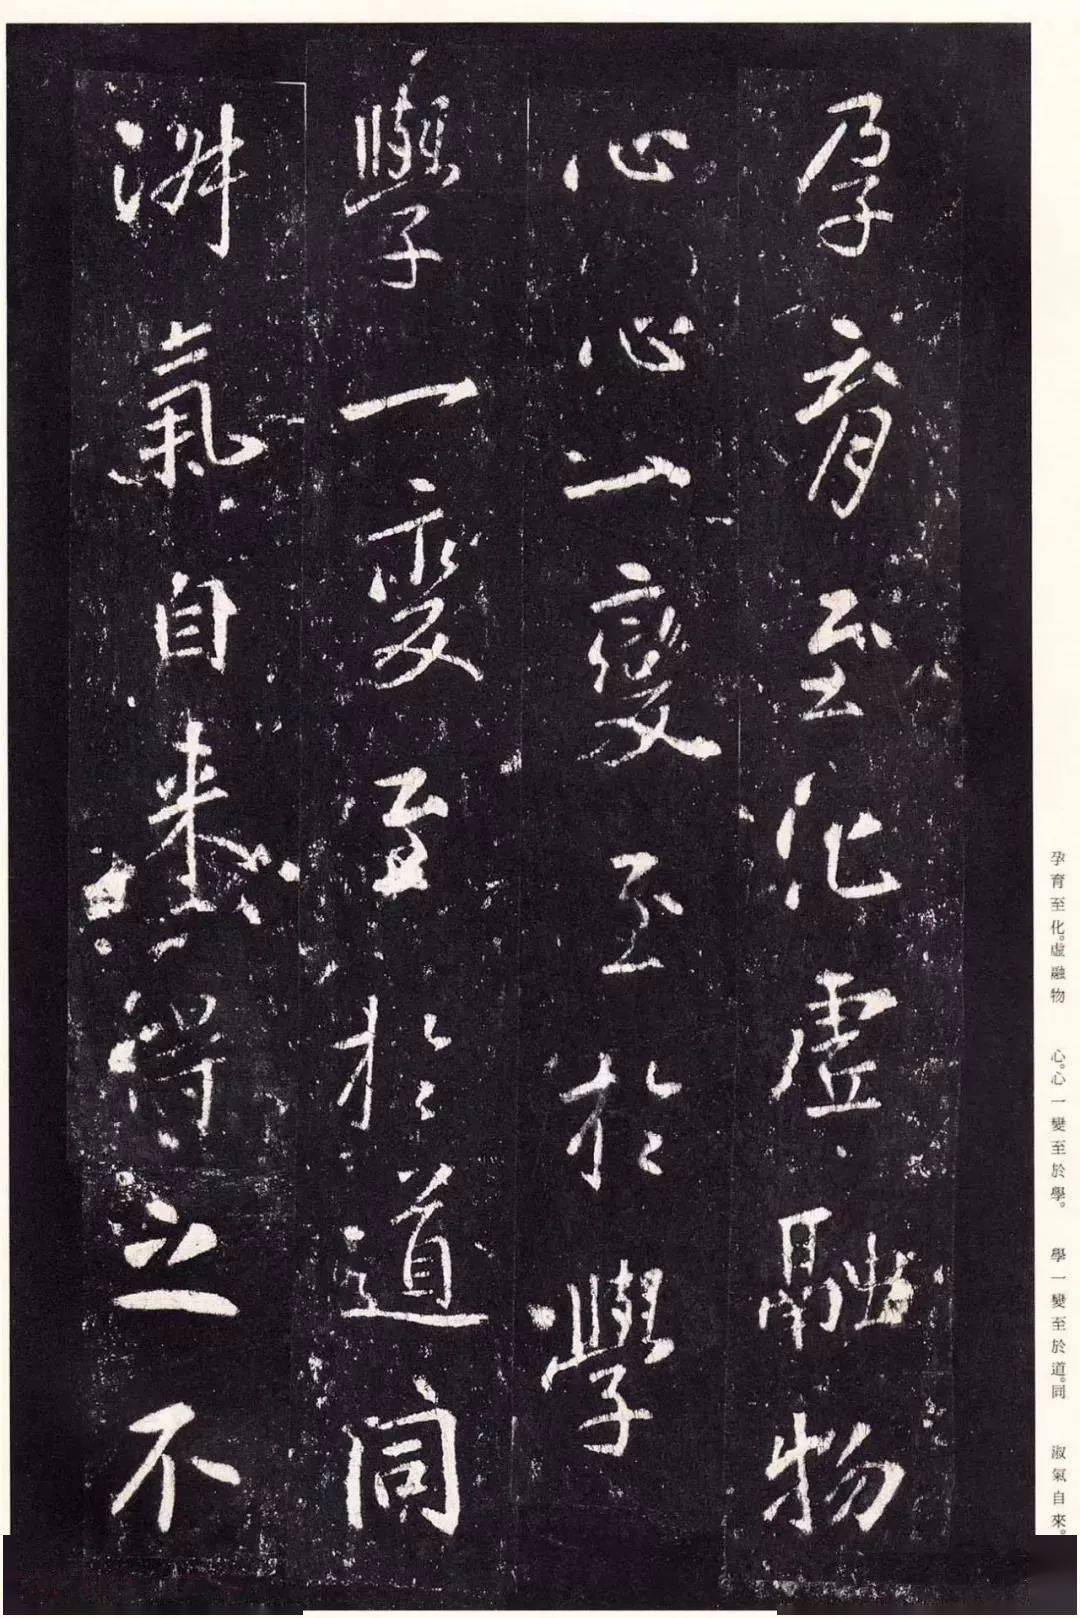 孕育至化虛融物
心心一變至於學
學一變至於道同
淑氣自來得之不
孕育至化。虛融物 心。心一變至於學。 學一變至於道。同 淑氣自來。